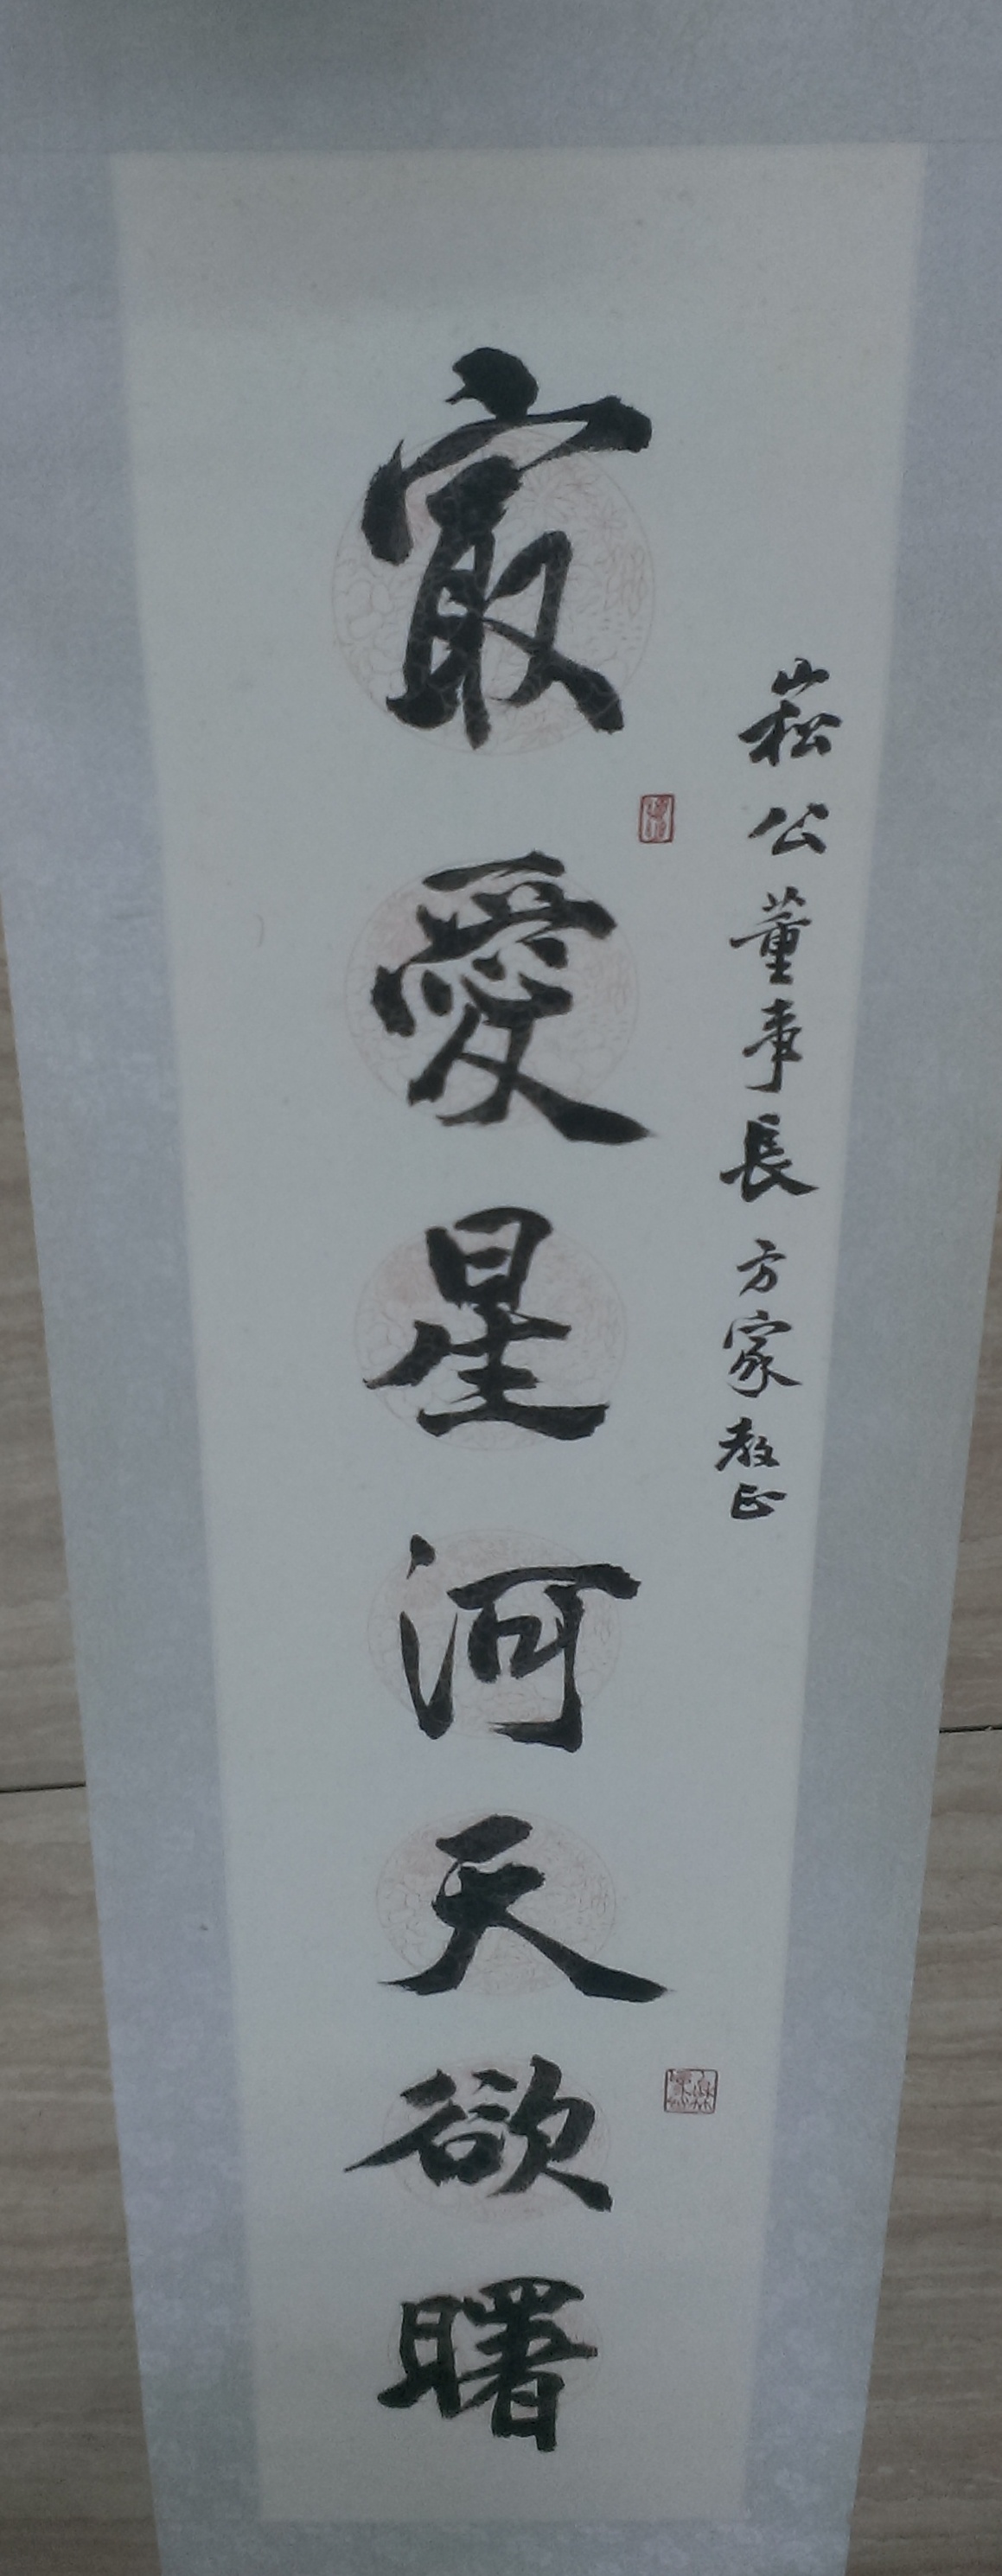 崧公董事長方家教正
寂愛星河天欲曙